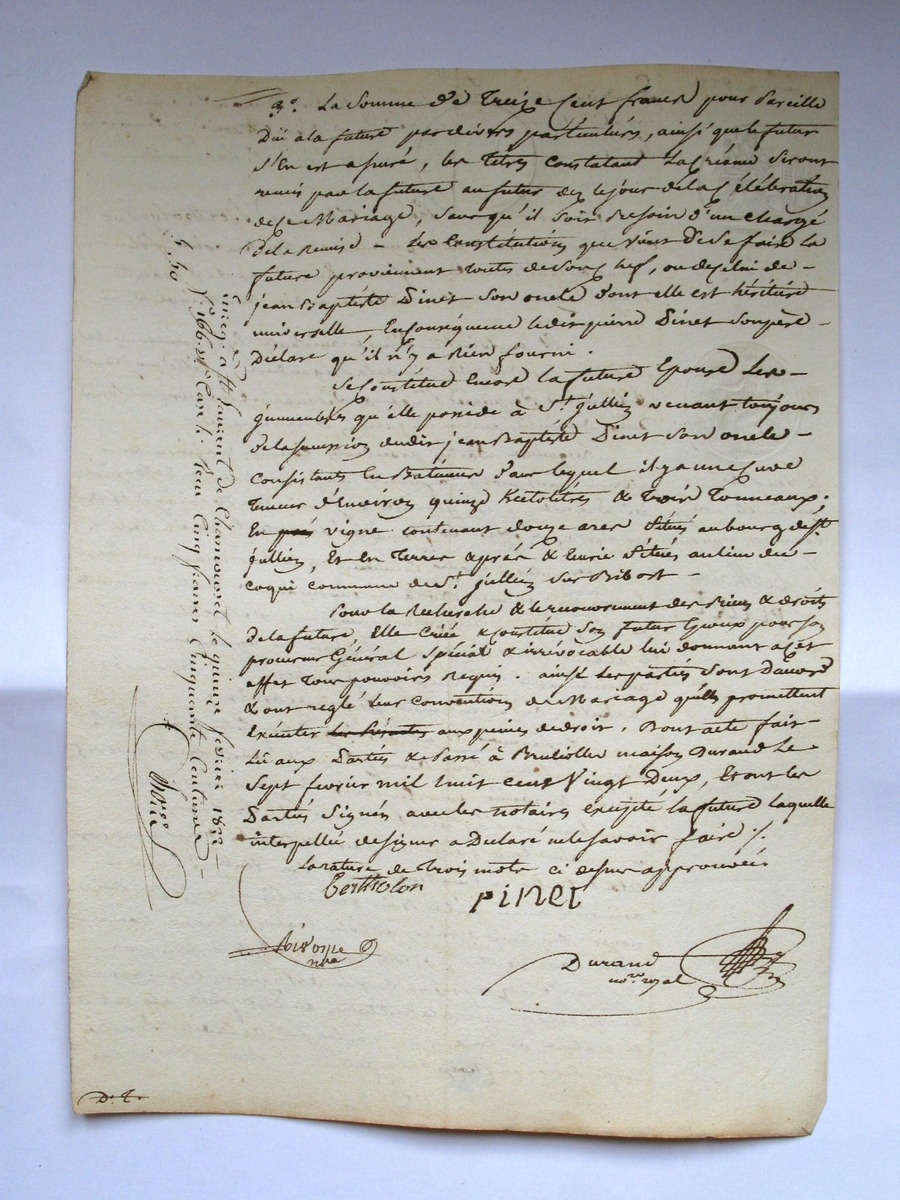 3o. La Somme de Treize Cent francs pour pareille
Due a la future par divers particuliers, ainsi que le futur
s'En est assuré, les titres Constatant La Créance seront
remis par la future au futur dès le jour de la Célébration
de ce Mariage, sans qu'il soit Besoin d'un Chargé
de la Remise – Les Constitutions que vient de se faire la
future proviennent toutes de son Chef, ou de celui de –
jean Baptiste Pinet Son oncle dont elle est héritière
universelle En Conséquence ledit pierre Pinet Son père –
Déclare qu'il n'y a Rien fourni.
Se Constitue Encore la future Epouse Les –
immeubles qu'elle possède à St. jullien venant toujours
de la succession dudit jean Baptiste Pinet Son oncle –
Consistants En Batiment dans lequel il y a une Cuve
Teneur d'Environ quinze hectolitres & trois Tonneaux,
En vigne contenant douze ares Situé au bourg de St.
jullien, Et En Terres & près & Situés au lieu du –
coqui commune de St. jullien Sur Bibost –
Pour la Recherche & le recouvrement des Biens & droits
de la future, Elle Créée & Constitue Son futur Epoux pour Son
procureur Général Spécial & irrévocable lui donnant a cet
effet Tous pouvoirs Requis. ainsi Les parties Sont D'accord
& ont reglé leur Conventions de Mariage qu'elles promettent
Exécuter aux peines de droit. Dont acte fait –
Lu aux Parties & Passé à Brullioles maison Durand Le
Sept février mil huit cent Vingt Deux, Et ont les
Parties Signés avec les notaires excepté la future laquelle
interpellée de signer a Déclaré ne le savoir faire ./.
La rature de trois mots ci dessus approuvée
Bertholon
Pinet
nre
Durand
nore. royal
Enreg. a St Laurent de Chamousset le quinze février 1822 –
fo. 166 Reçu Cinq francs Cinquante Centimes –
D. T.